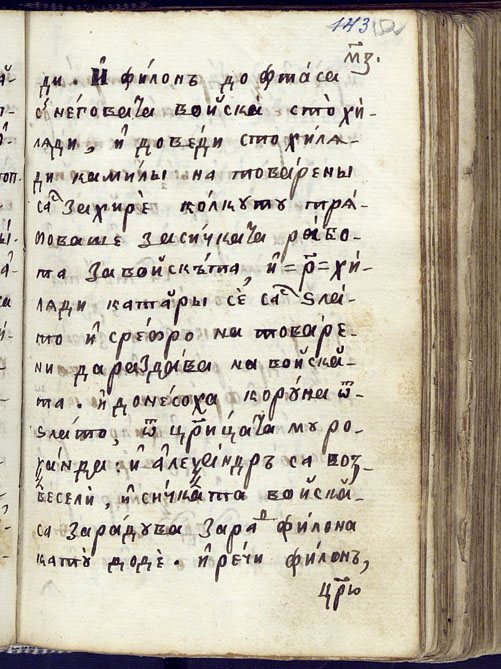 143
м҃з.
ди. И҆ фило́нъ до фта́са
с не́говата войска̀ сто̀ хи́-
ляди, и҆ доведи сто хи́ля-
ди ками́лы на това́рены
са захирѐ колкуту тря́-
боваше за си́чката ра́бо-
та за войскъ́та, и҆ =р҃= хи́-
ляди ката̑ры сѐ са ѕла́-
то и҆ сребро на това́ре-
ни да разда́ва на войска̑-
та. и҆ доне́соха кору́на ѿ-
ѕла́то, ѿ цр҃и́цата му ро-
ѯа́нда. и҆ а҆леѯа́ндръ са воз̾-
весели̂, и҆ си́чката войска̑-
са зара́дува зара фи́лона
кату̀ додѐ. и҆ ре́чи фи́лонъ,
цр҃ю